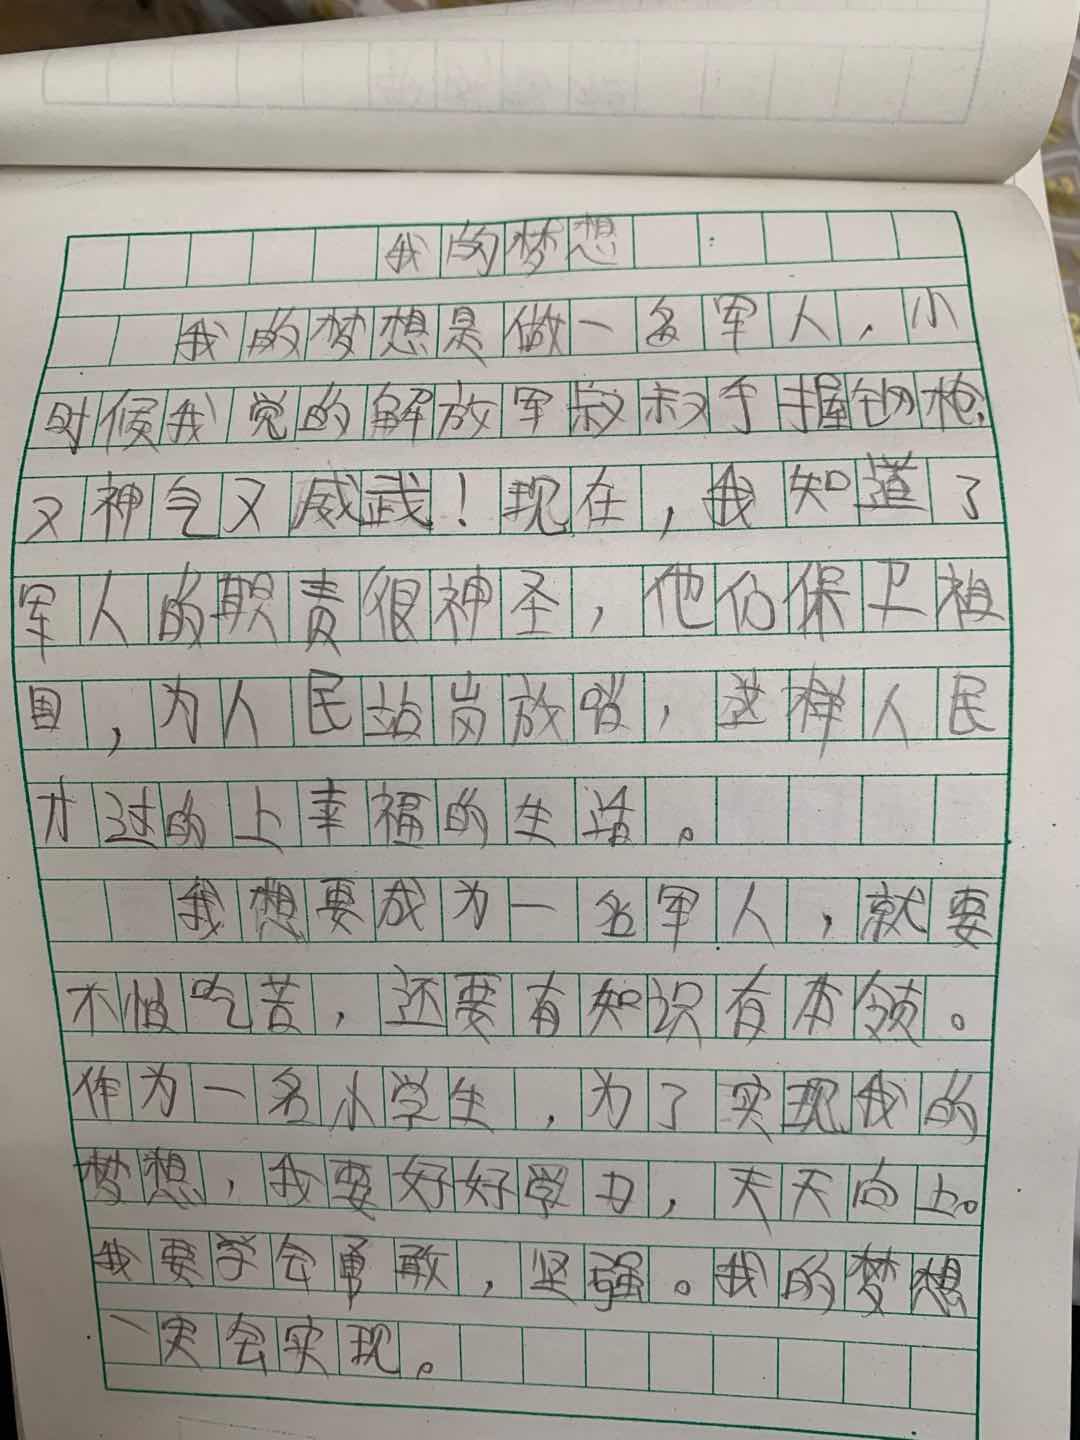 我的梦想
我的梦想是做一名军人，小
时候我觉的解放军叔叔手握钢枪，
又神气又威武！现在，我知道了
军人的职责很神圣，他们保卫祖
国，为人民站岗放哨，这样人民
才过的上幸福的生活。
我想要成为一名军人，就要
不怕吃苦，还要有知识有本领。
作为一名小学生，为了实现我的
梦想，我要好好学习，天天向上。
我要学会勇敢，坚强。我的梦想
一定会实现。